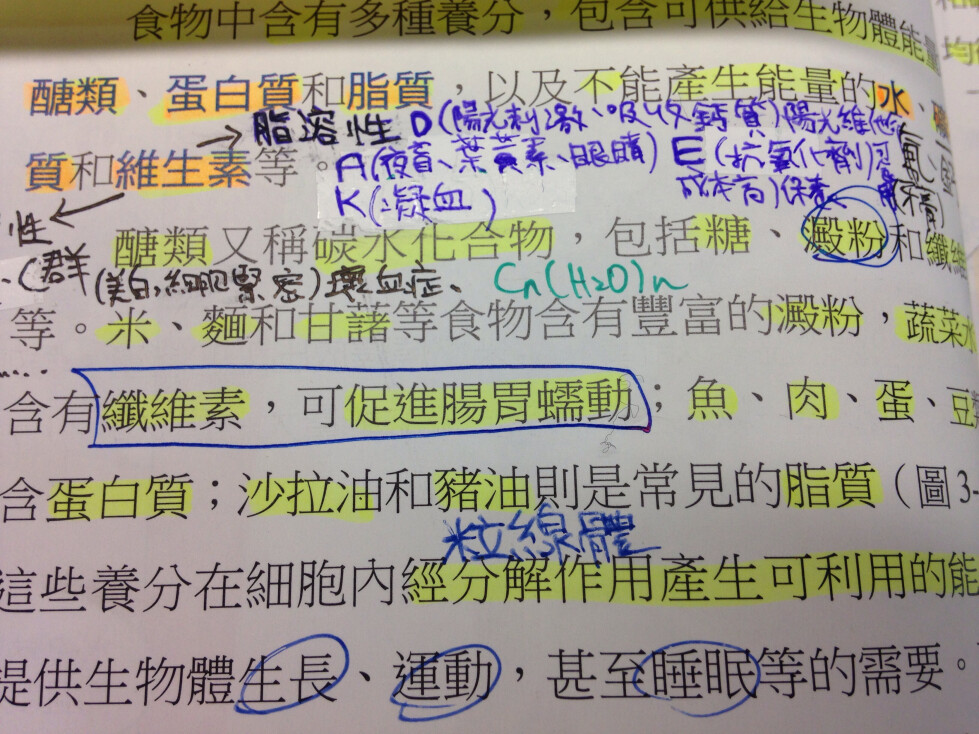 食物中含有多種養分，包含可供給生物體能量
醣類、蛋白質和脂質，以及不能產生能量的水、
脂溶性 D(陽光刺激、吸收鈣質)陽光維他
質和維生素等。
A(夜盲、葉黃素、眼睛) E(抗氧化劑)
K(凝血)
性
醣類又稱碳水化合物，包括糖、澱粉和纖維
、C群(美白,細胞緊密)壞血症、 Cn(H2O)n
等。米、麵和甘藷等食物含有豐富的澱粉，蔬菜水
含有纖維素，可促進腸胃蠕動；魚、肉、蛋、豆
含蛋白質；沙拉油和豬油則是常見的脂質（圖3-
粒線體
這些養分在細胞內經分解作用產生可利用的能
提供生物體生長、運動，甚至睡眠等的需要。